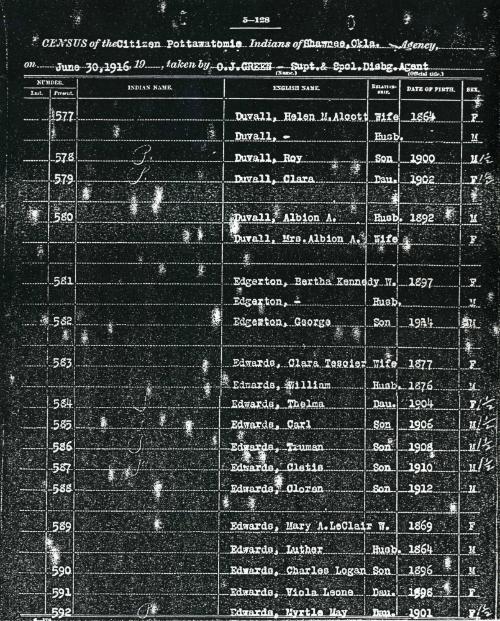 5-128
CENSUS of the Citizen Pottawatomie Indians of Shawnee, Okla. Agency,
on June 30, 1916 19 , taken by O.J.GREEN - Supt.& Spcl.Disbg.Agent
(Name.) (Official title.)
NUMBER. INDIAN NAME. ENGLISH NAME. RELATION-SHIP. DATE OF BIRTH. SEX.
Last. Present.
577 Duvall, Helen M.Alcott Wife 1864 F
Duvall, - Husb. M
578 Duvall, Roy Son 1900 M/½
579 Duvall, Clara Dau. 1902 F/½
580 Duvall, Albion A. Husb. 1892 M
Duvall, Mrs.Albion A. Wife F
581 Edgerton, Bertha Kennedy W. 1897 F
Edgerton, - Husb. M
582 Edgerton, George Son 1914 M
583 Edwards, Clara Tescier Wife 1877 F
Edwards, William Husb. 1876 M
584 Edwards, Thelma Dau. 1904 F/½
585 Edwards, Carl Son 1906 M/½
586 Edwards, Truman Son 1908 M/½
587 Edwards, Cletis Son 1910 M/½
588 Edwards, Cloren Son 1912 M
589 Edwards, Mary A.LeClair W. 1869 F
Edwards, Luther Husb. 1864 M
590 Edwards, Charles Logan Son 1896 M
591 Edwards, Viola Leone Dau. 1898 F
592 Edwards, Myrtle May Dau. 1901 F/½